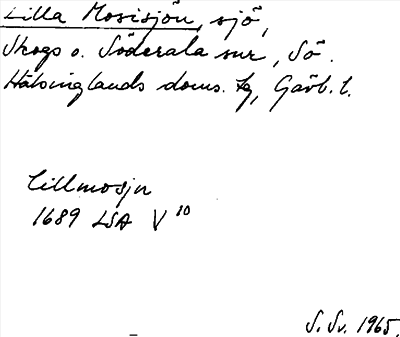 Lilla Mosisjön, sjö,
Skogs o. Söderala snr, Sö.
Hälsinglands doms. tg, Gävb. l.
Lillmosjn
1689 LSA V 10
S. Sv. 1965.